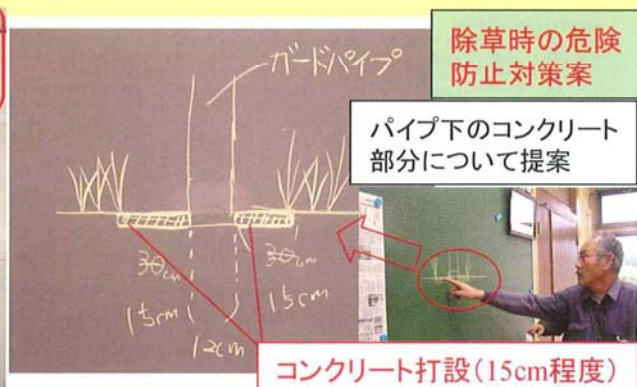 除草時の危険
防止対策案
パイプ下のコンクリート
部分について提案
ガードパイプ
30cm
30cm
15cm
15cm
12cm
コンクリート打設(15cm程度)